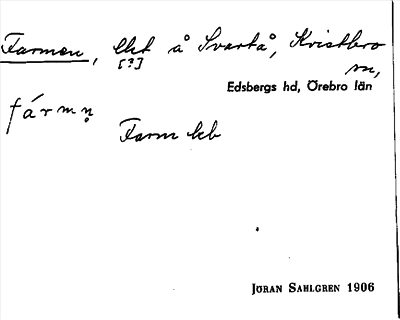 Farmen, Ekt å Svartå, Kristbro
[?] sn,
Edsbergs hd, Örebro län
fármn̥
Farm kb
JÖRAN SAHLGREN 1906